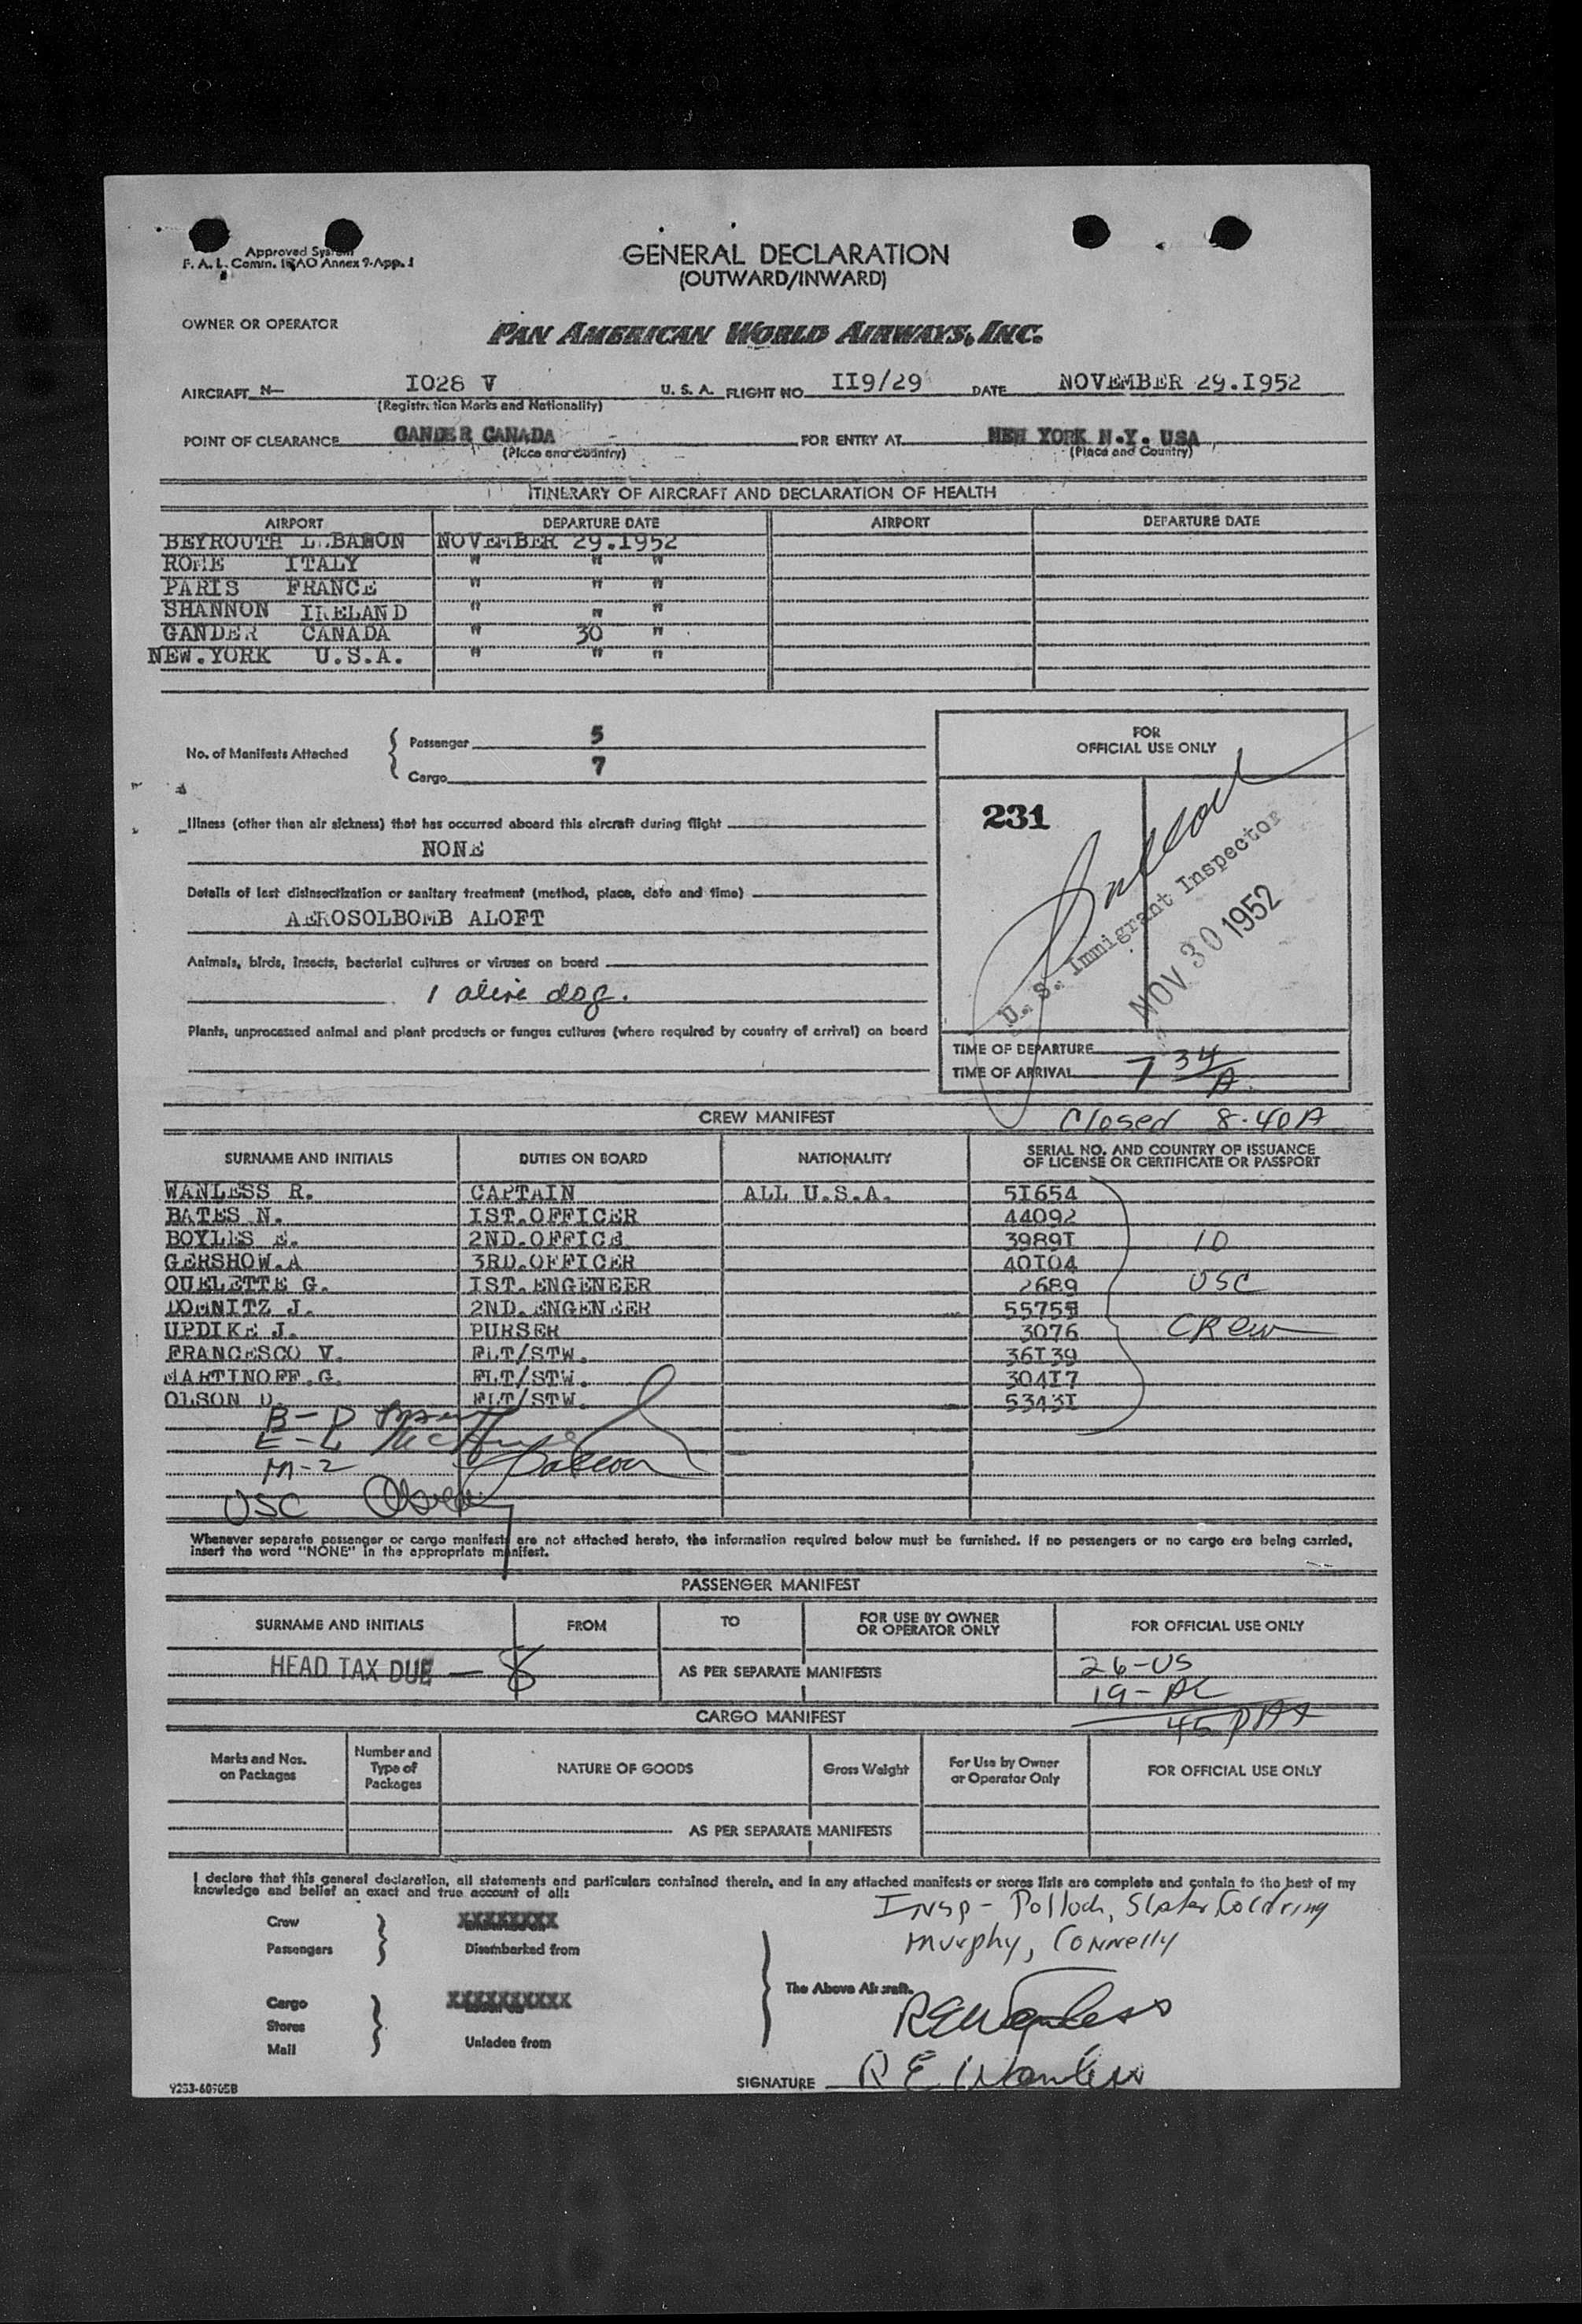 Approved System
F. A. L. Comm. ICAO Annex 9-App. 1
GENERAL DECLARATION
(OUTWARD/INWARD)
OWNER OR OPERATOR
PAN AMERICAN WORLD AIRWAYS, INC.
AIRCRAFT N- I028 V U. S. A. FLIGHT NO. II9/29 DATE NOVEMBER 29.I952
(Registration Marks and Nationality)
POINT OF CLEARANCE GANDER CANADA FOR ENTRY AT NEW YORK N.Y. USA
(Place and Country) (Place and Country)
ITINERARY OF AIRCRAFT AND DECLARATION OF HEALTH
AIRPORT DEPARTURE DATE AIRPORT DEPARTURE DATE
BEYROUTH LEBANON NOVEMBER 29.I952
ROME ITALY " " "
PARIS FRANCE " " "
SHANNON IRELAND " " "
GANDER CANADA " 30 "
NEW.YORK U.S.A. " " "
No. of Manifests Attached
Passenger 5
Cargo 7
FOR
OFFICIAL USE ONLY
231
U. S. Immigrant Inspector
NOV 30 1952
Illness (other than air sickness) that has occurred aboard this aircraft during flight
NONE
Details of last disinsectization or sanitary treatment (method, place, date and time)
AEROSOLBOMB ALOFT
Animals, birds, insects, bacterial cultures or viruses on board
1 alive dog.
Plants, unprocessed animal and plant products or fungus cultures (where required by country of arrival) on board
TIME OF DEPARTURE
TIME OF ARRIVAL 7 34/A
CREW MANIFEST Closed 8.40A
SURNAME AND INITIALS DUTIES ON BOARD NATIONALITY SERIAL NO. AND COUNTRY OF ISSUANCE
OF LICENSE OR CERTIFICATE OR PASSPORT
WANLESS R. CAPTAIN ALL U.S.A. 5I654
BATES N. IST.OFFICER 44092
BOYLES E. 2ND.OFFICE 3989I 10
GERSHOW.A 3RD.OFFICER 40I04
OUELETTE G. IST.ENGENEER 2689 USC
DOMNITZ J. 2ND.ENGENEER 5575
UPDIKE J. PURSER 3076 CRew
FRANCESCO V. FLT/STW. 36I39
MARTINOFF.G. FLT/STW. 304I7
OLSON D. FLT/STW. 5343I
B-D
E-L
M-2
USC
Whenever separate passenger or cargo manifests are not attached hereto, the information required below must be furnished. If no passengers or no cargo are being carried,
insert the word "NONE" in the appropriate manifest.
PASSENGER MANIFEST
SURNAME AND INITIALS FROM TO FOR USE BY OWNER
OR OPERATOR ONLY FOR OFFICIAL USE ONLY
HEAD TAX DUE — 8 AS PER SEPARATE MANIFESTS 26-US
19-AL
CARGO MANIFEST 45 PAX
Marks and Nos.
on Packages
Number and
Type of
Packages
NATURE OF GOODS Gross Weight
For Use by Owner
or Operator Only
FOR OFFICIAL USE ONLY
AS PER SEPARATE MANIFESTS
I declare that this general declaration, all statements and particulars contained therein, and in any attached manifests or stores lists are complete and contain to the best of my
knowledge and belief an exact and true account of all:
Insp - Pollock, Slater, Goldring
Murphy, Connelly
Crew XXXXXXXX
Passengers Disembarked from
The Above Aircraft.
Cargo XXXXXXXXXX
Stores
Mail Unladen from
REWanless
SIGNATURE R E Wanless
9253-60705B